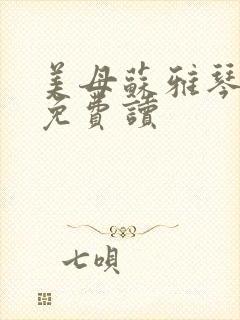 美母蘇雅琴
免費讀
七唄